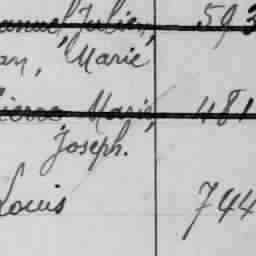 Julien, 593
Marie
Pierre Marie, 481
Joseph.
Louis 744